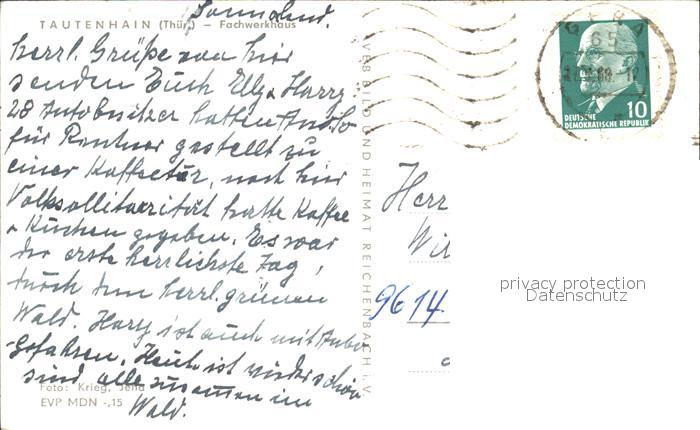 Sonnabend.
TAUTENHAIN (Thür.) – Fachwerkhaus
Herrl. Grüße von hier
senden Euch Elly & Harry
28 Autobesitzer hatten Autos
für Rentner gestellt zu
einer Kaffeetour, nach hier
Volkssolidarität hatte Kaffee
& Kuchen gegeben. Es war
der erste herrlichste Tag,
durch den herrl. grünen
Wald. Harry ist auch mit Auto
gefahren. Heute ist wieder schön
sind alle zusammen im
Wald.
Foto: Krieg, Jena
EVP MDN -,15
BILD UND HEIMAT REICHENBACH i. V.
GERA
65
10
DEUTSCHE
DEMOKRATISCHE REPUBLIK
Herr
Wil
9614
privacy protection
Datenschutz